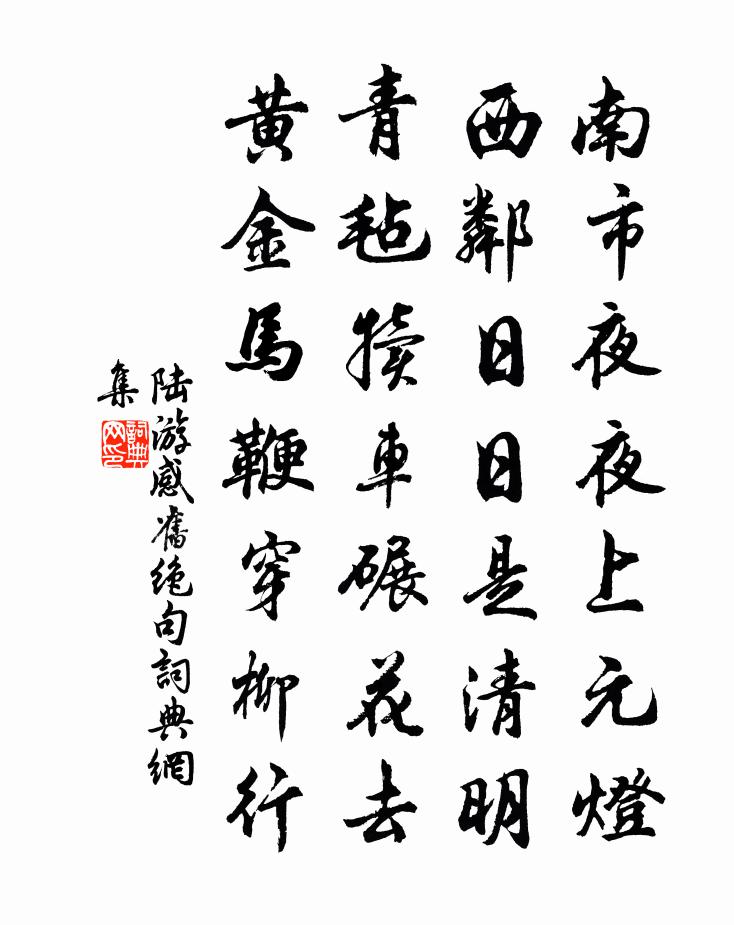 南市夜夜上元燈
西鄰日日是清明
青毡犢車碾花去
黄金馬鞭穿柳行
陆游感舊绝句詞典網
集
詞典
网印